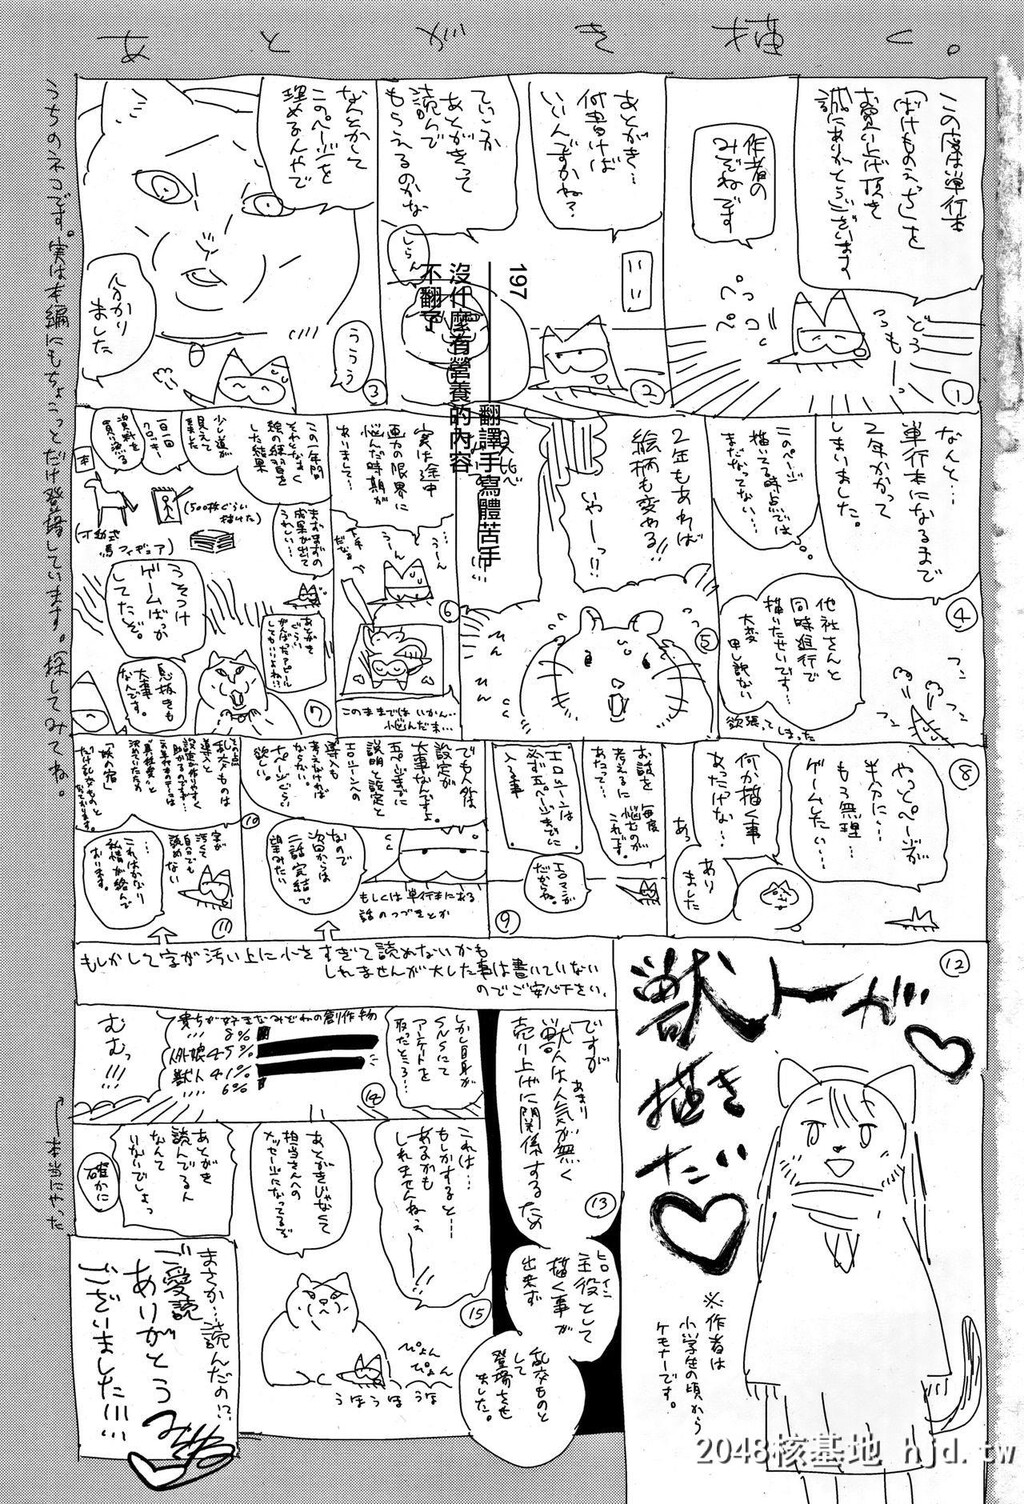 あとがき描く。
この度は単行本
「ばけものみち」を
お買い上げ頂き
誠にありがとうございます
作者の
みぞねです
どうも
ペコ
ペコ。
①
あとがき…
何書けば
いいんですかね？
②
ていうか
あとがきって
読んで
もらえるのかな
しらん
なんとかして
このページを
埋めるんやで
ううう
分かり
ました
③
197
沒什麼有營養的內容
不翻了
翻譯手寫體苦手
なんと…
単行本になるまで
2年かかって
しまいました。
このページ
描いてる時点では
まだなってない…
他社さんと
同時進行で
描いたせいです…
大変
申し訳ない
欲張ってしまった
④
2年もあれば
絵柄も変わる!!
いやー!!
ひん
ひん
⑤
実は3年中
画力の限界に
悩んだ時期が
ありまして…
うーん
うーん
このままではいかん…
⑥
この一年間
絵の練習を
した結果
まあまあの
成果が出て
うれしい…
少し道が
見えて
きた
一日一回
クロッキー
資料を
買い漁る
本
(500枚ぐらい
描けた)
(可動式
馬フィギュア)
うそつけ
ゲームばっか
してたぞ。
息抜きも
大事
なんです。
⑦
やっとページが
半分に…
もう無理…
ゲームしたい…
何か描く事
あったけな…
あっ
あり
ました
⑧
お話を
考えるに
あたって…
毎度
悩むのが
これです。
エロシーンは
必ず五ページまでに
入る事
エロマンガ
だからね。
⑨
でも人外は
設定が
大事なんですよ
五ページまでに
説明と設定と
エロシーンへの
導入も
考えなければ
ならない。
十ページぐらい
欲しい。
なので
次回からは
二話完結で
望みたい
もしくは単行本にある
話のつづきとか
⑩
その点
乱交ものは
導入と
設定が作りやすく
助かるのですが
「妖の宿」
だけ乱交ものと
なっております。
これはかなり
私情が絡んで
おります。
字が
汚くて
自分でも
読めない
⑪
もしかして字が汚い上に小さすぎて読めないかも
しれませんが大した事は書いていない
のでご安心下さい。
獣人が
描き
たい
※作者は
小学生の頃から
ケモナーです。
⑫
ですが
獣人はあまり人気が無く
売り上げに関係するため
ヒロイン
主役として
描く事が
出来ず
乱交ものと
して
登場させ
ました。
⑬
しかし自身が
SNSにて
アンケートを
取ったところ…
貴方が好きなみぞねの創作もの
8%
人外娘 45%
獣人 41%
6%
むむっ!!!
⑭
これは…
もしかすると…
あるかも
しれませんねぇ
あとがきじゃなくて
担当さんへの
メッセージになってるぞ
あとがき
読んでるん
なんて
いないでしょっ
確かに
ぴょん
ぴょん
うほうほうほ
⑮
まさか…読んだのに？
ご愛読
ありがとう
ございました…!!!
みぞね
うちのネコです。実は本編にもちょこっとだけ登場しています。探してみてね。
本当にやった
2048核基地 hjd.tw